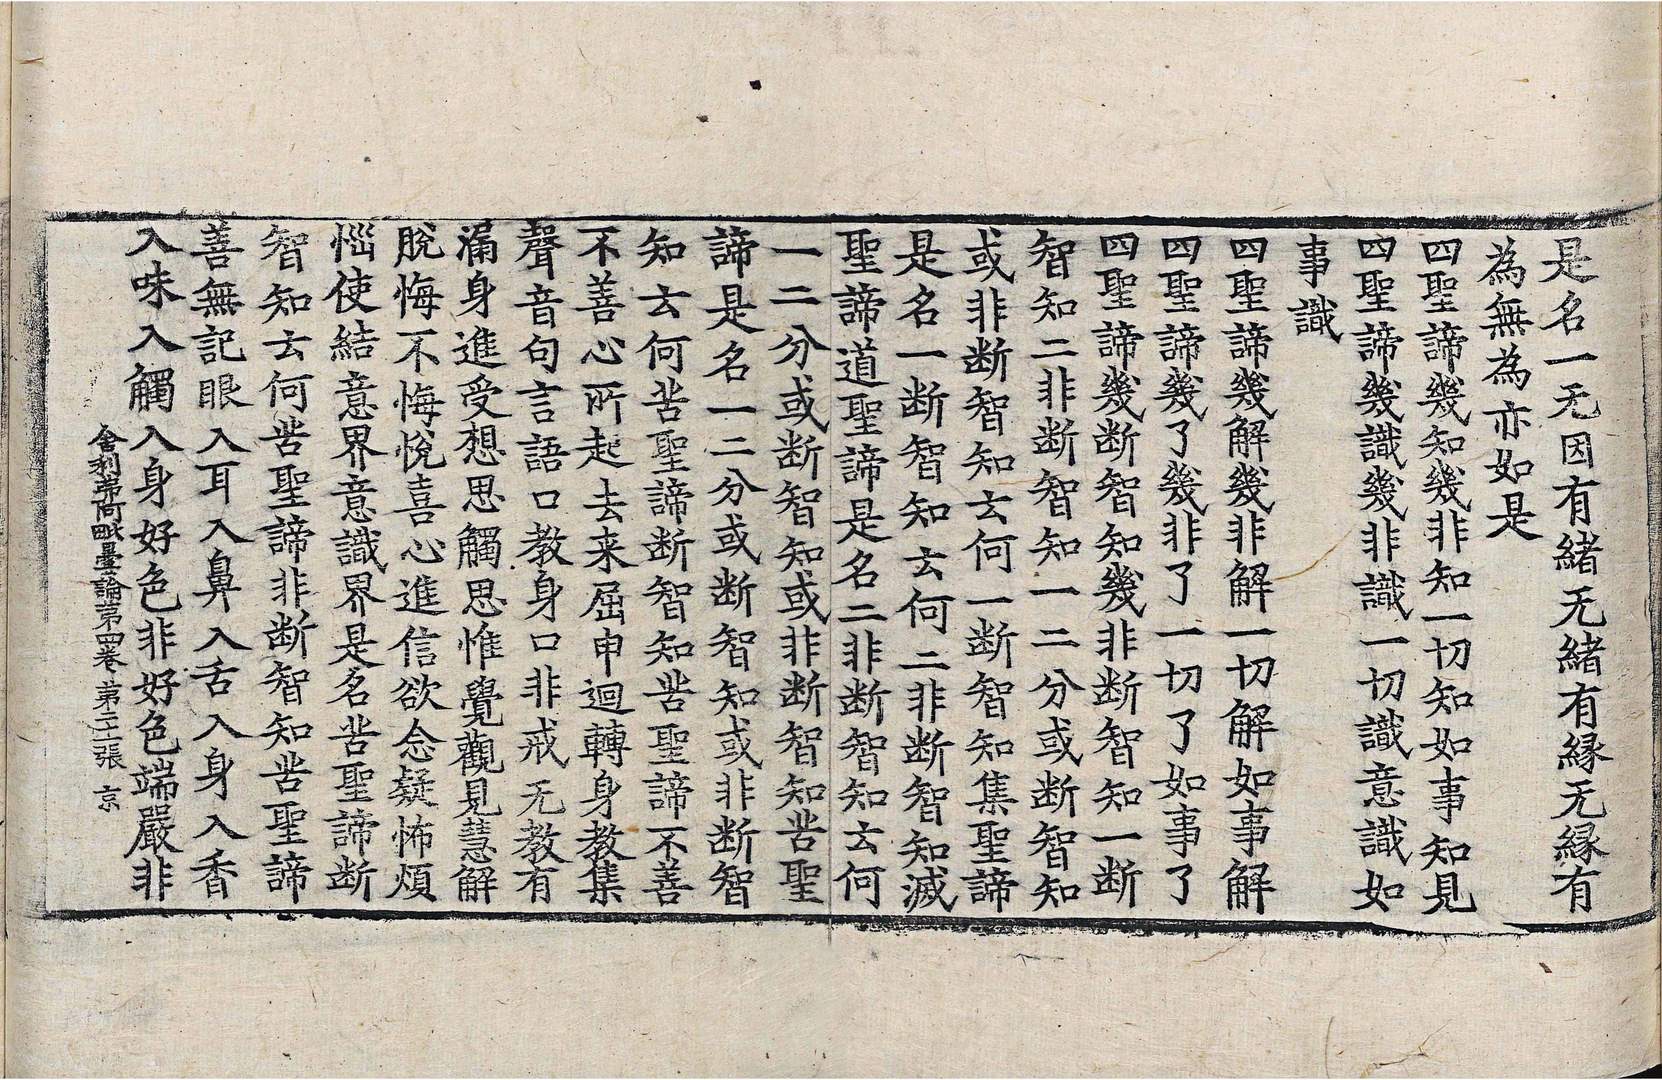 是名一无因有緒无緒有緣无緣有
為無為亦如是
四聖諦幾知幾非知一切知如事知見
四聖諦幾識幾非識一切識意識如
事識
四聖諦幾解幾非解一切解如事解
四聖諦幾了幾非了一切了如事了
四聖諦幾断智知幾非断智知一断
智知二非断智知一二分或断智知
或非断智知云何一断智知集聖諦
是名一断智知云何二非断智知滅
聖諦道聖諦是名二非断智知云何
一二分或断智知或非断智知苦聖
諦是名一二分或断智知或非断智
知云何苦聖諦断智知苦聖諦不善
不善心所起去来屈申迴轉身教集
聲音句言語口教身口非戒无教有
漏身進受想思觸思惟覺觀見慧解
脫悔不悔悅喜心進信欲念疑怖煩
惱使結意界意識界是名苦聖諦断
智知云何苦聖諦非断智知苦聖諦
善無記眼入耳入鼻入舌入身入香
入味入觸入身好色非好色端嚴非
舍利弗阿毗曇論第四卷 第二張 京